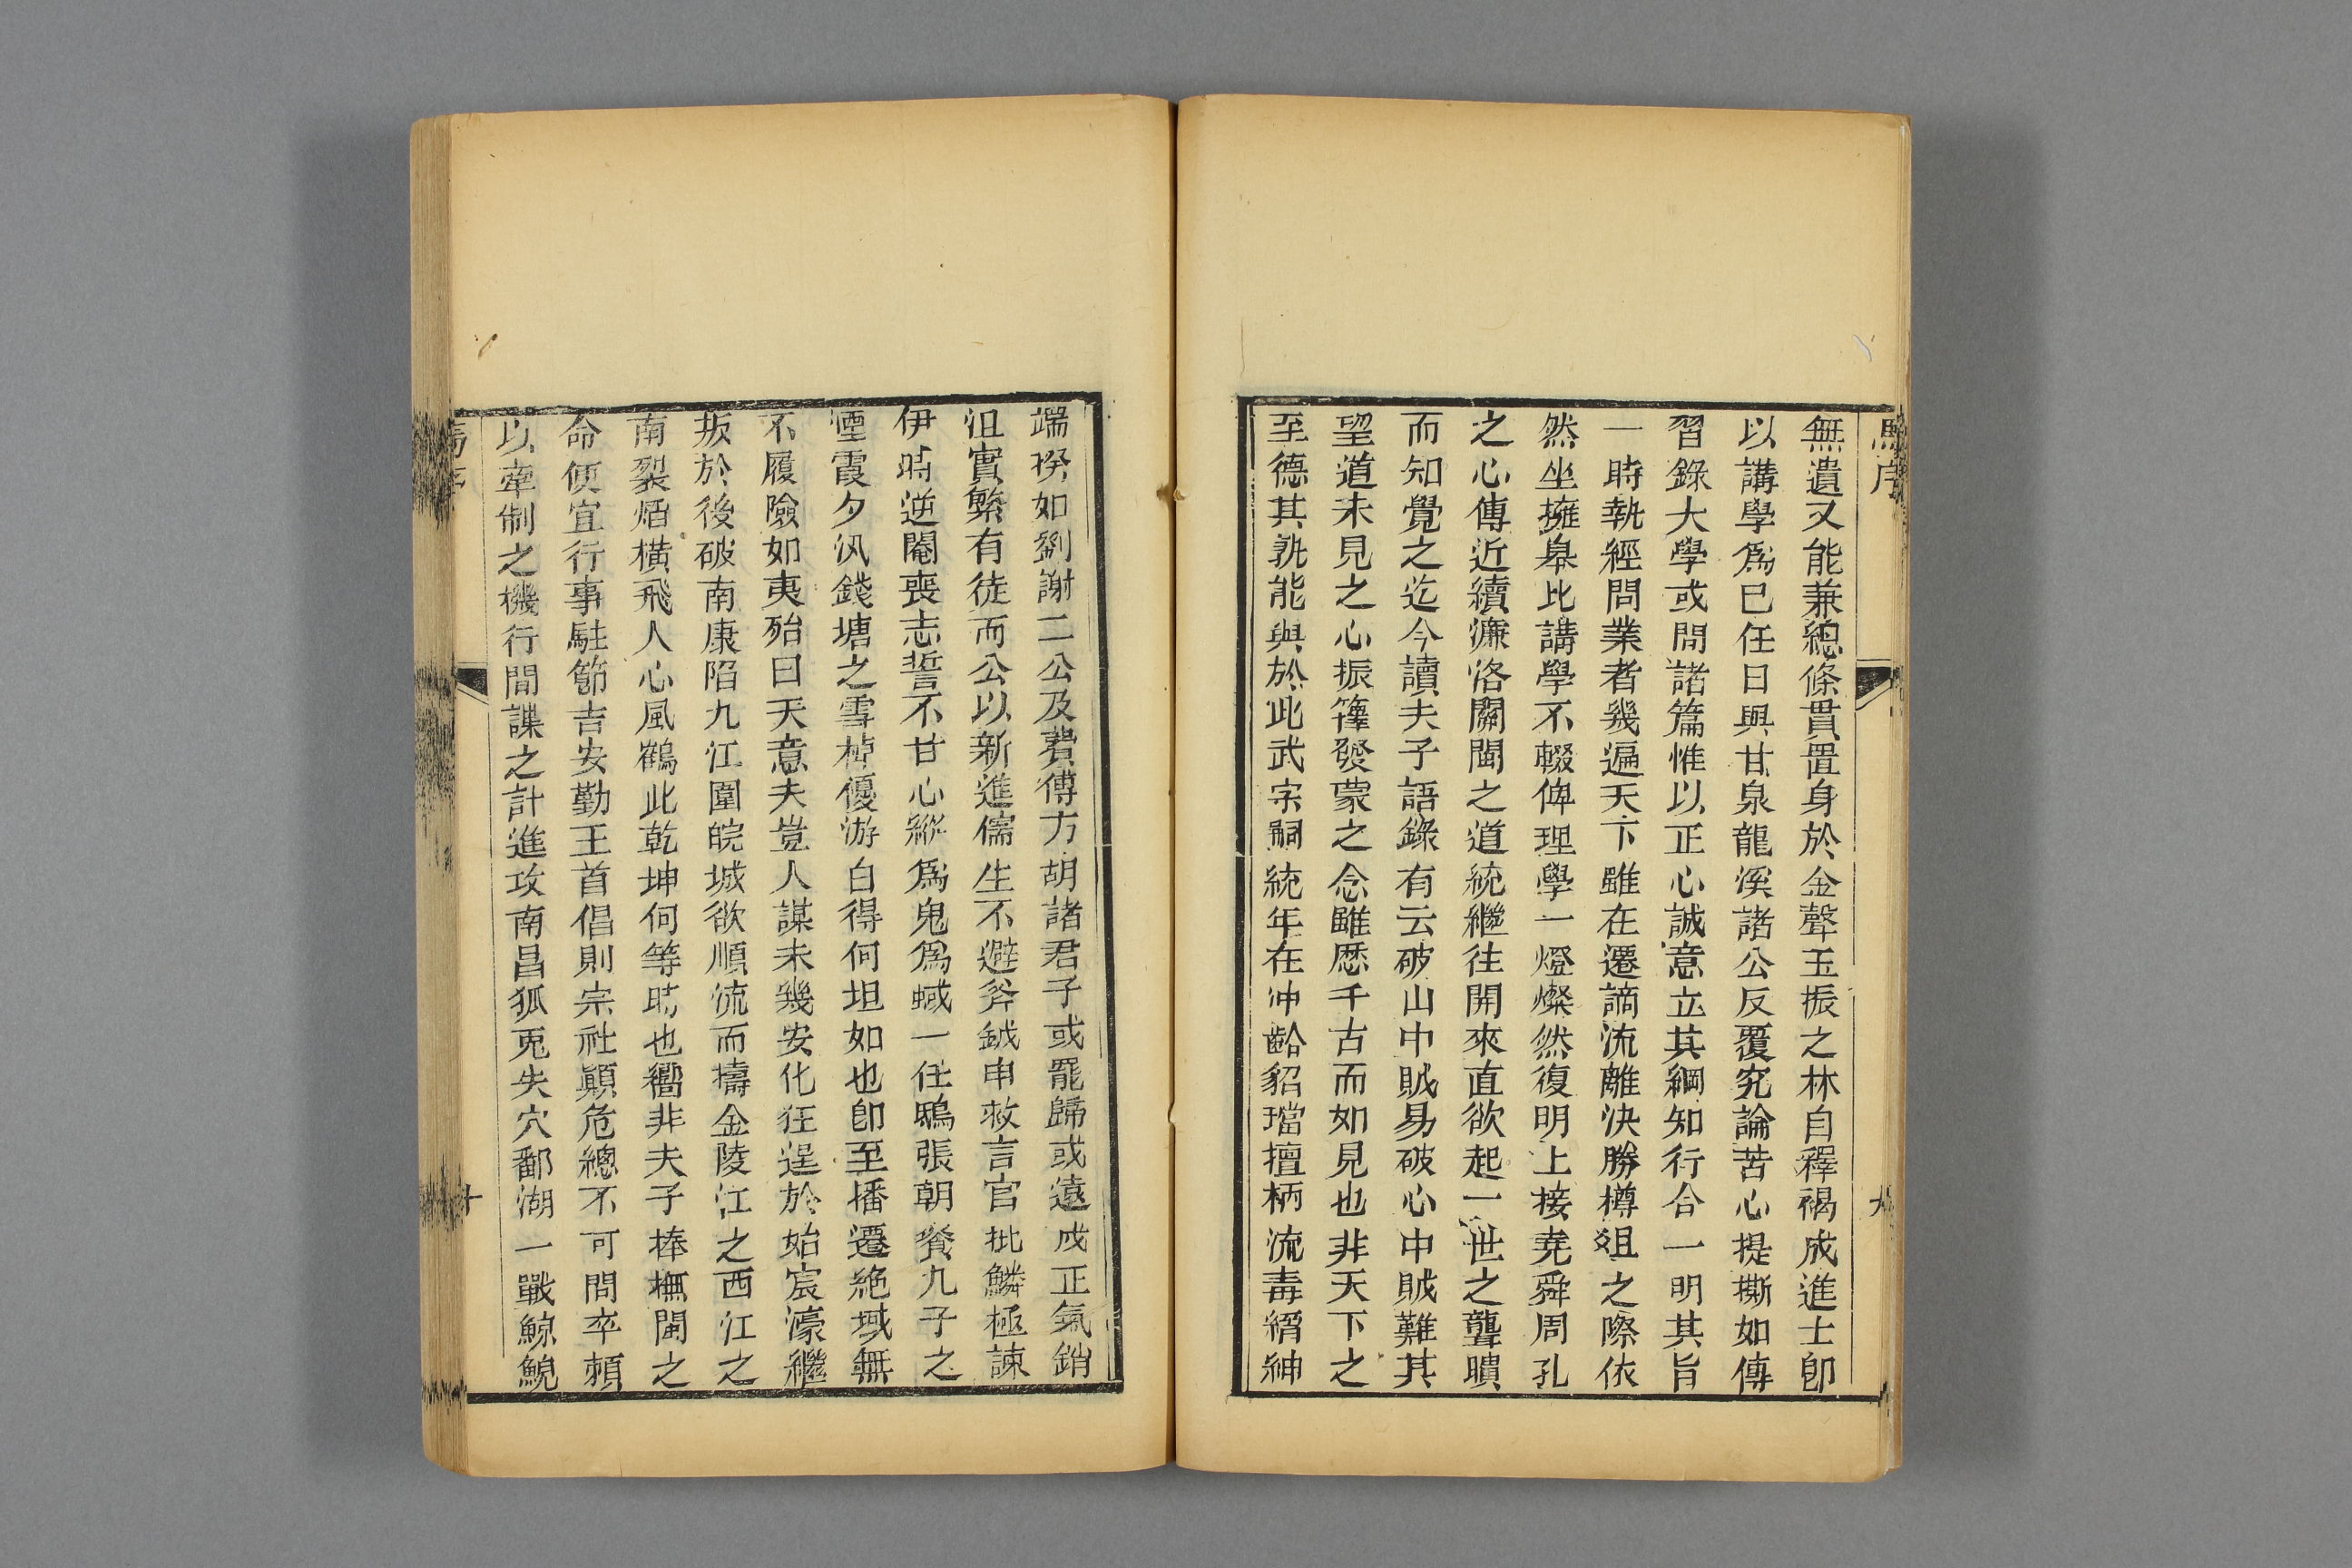 馬序
九
無遺又能兼總條貫置身於金聲玉振之林自釋褐成進士卽
以講學爲已任日與甘泉龍溪諸公反覆究論苦心提撕如傳
習錄大學或問諸篇惟以正心誠意立其綱知行合一明其旨
一時執經問業者幾遍天下雖在遷謫流離決勝樽俎之際依
然坐擁皋比講學不輟俾理學一燈燦然復明上接堯舜周孔
之心傳近續濂洛關閩之道統繼往開來直欲起一世之聾聵
而知覺之迄今讀夫子語錄有云破山中賊易破心中賊難其
望道未見之心振籜發蒙之念雖歷千古而如見也非天下之
至德其孰能與於此武宗嗣統年在沖齡貂璫擅柄流毒縉紳
端揆如劉謝二公及費傅方胡諸君子或罷歸或遠戍正氣銷
沮實繁有徒而公以新進儒生不避斧鉞申救言官批鱗極諫
伊時逆閹喪志誓不甘心縱爲鬼爲蜮一任鴟張朝餐九子之
煙霞夕汎錢塘之雪棹優游自得何坦如也卽至播遷絕域無
不履險如夷殆曰天意夫豈人謀未幾安化狂逞於始宸濠繼
叛於後破南康陷九江圍皖城欲順流而擣金陵江之西江之
南裂焰橫飛人心風鶴此乾坤何等時也嚮非夫子捧撫閩之
命便宜行事駐節吉安勤王首倡則宗社顛危總不可問卒賴
以牽制之機行間諜之計進攻南昌狐兎失穴鄱湖一戰鯨鯢
馬序
十